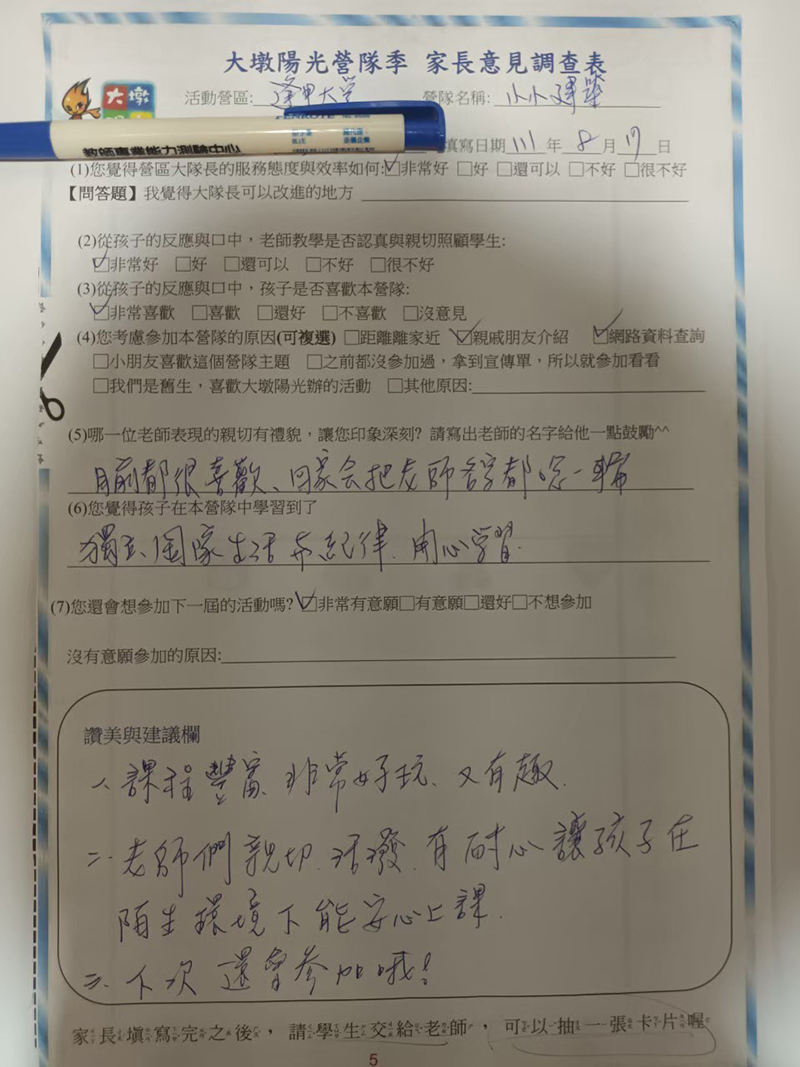 大墩陽光營隊季 家長意見調查表
大墩
活動營區: 逢甲大学 營隊名稱: 小小建築
教師專業能力測驗中心
填寫日期 111 年 8 月 17 日
(1)您覺得營區大隊長的服務態度與效率如何:☑非常好 □好 □還可以 □不好 □很不好
【問答題】我覺得大隊長可以改進的地方
(2)從孩子的反應與口中，老師教學是否認真與親切照顧學生:
☑非常好 □好 □還可以 □不好 □很不好
(3)從孩子的反應與口中，孩子是否喜歡本營隊:
☑非常喜歡 □喜歡 □還好 □不喜歡 □沒意見
(4)您考慮參加本營隊的原因(可複選) □距離離家近 ☑親戚朋友介紹 ☑網路資料查詢
□小朋友喜歡這個營隊主題 □之前都沒參加過，拿到宣傳單，所以就參加看看
□我們是舊生，喜歡大墩陽光辦的活動 □其他原因:
(5)哪一位老師表現的親切有禮貌，讓您印象深刻? 請寫出老師的名字給他一點鼓勵^^
目前都很喜歡、回家会把老師名字都唸一輪
(6)您覺得孩子在本營隊中學習到了
獨立、團隊生活与紀律、用心学習.
(7)您還會想參加下一屆的活動嗎?☑非常有意願□有意願□還好□不想參加
沒有意願參加的原因:
讚美與建議欄
一、課程豐富、非常好玩、又有趣.
二、老師們親切、活潑、有耐心讓孩子在
陌生環境下能安心上課.
三、下次還會參加哦!
家長填寫完之後，請學生交給老師，可以抽一張卡片喔
5